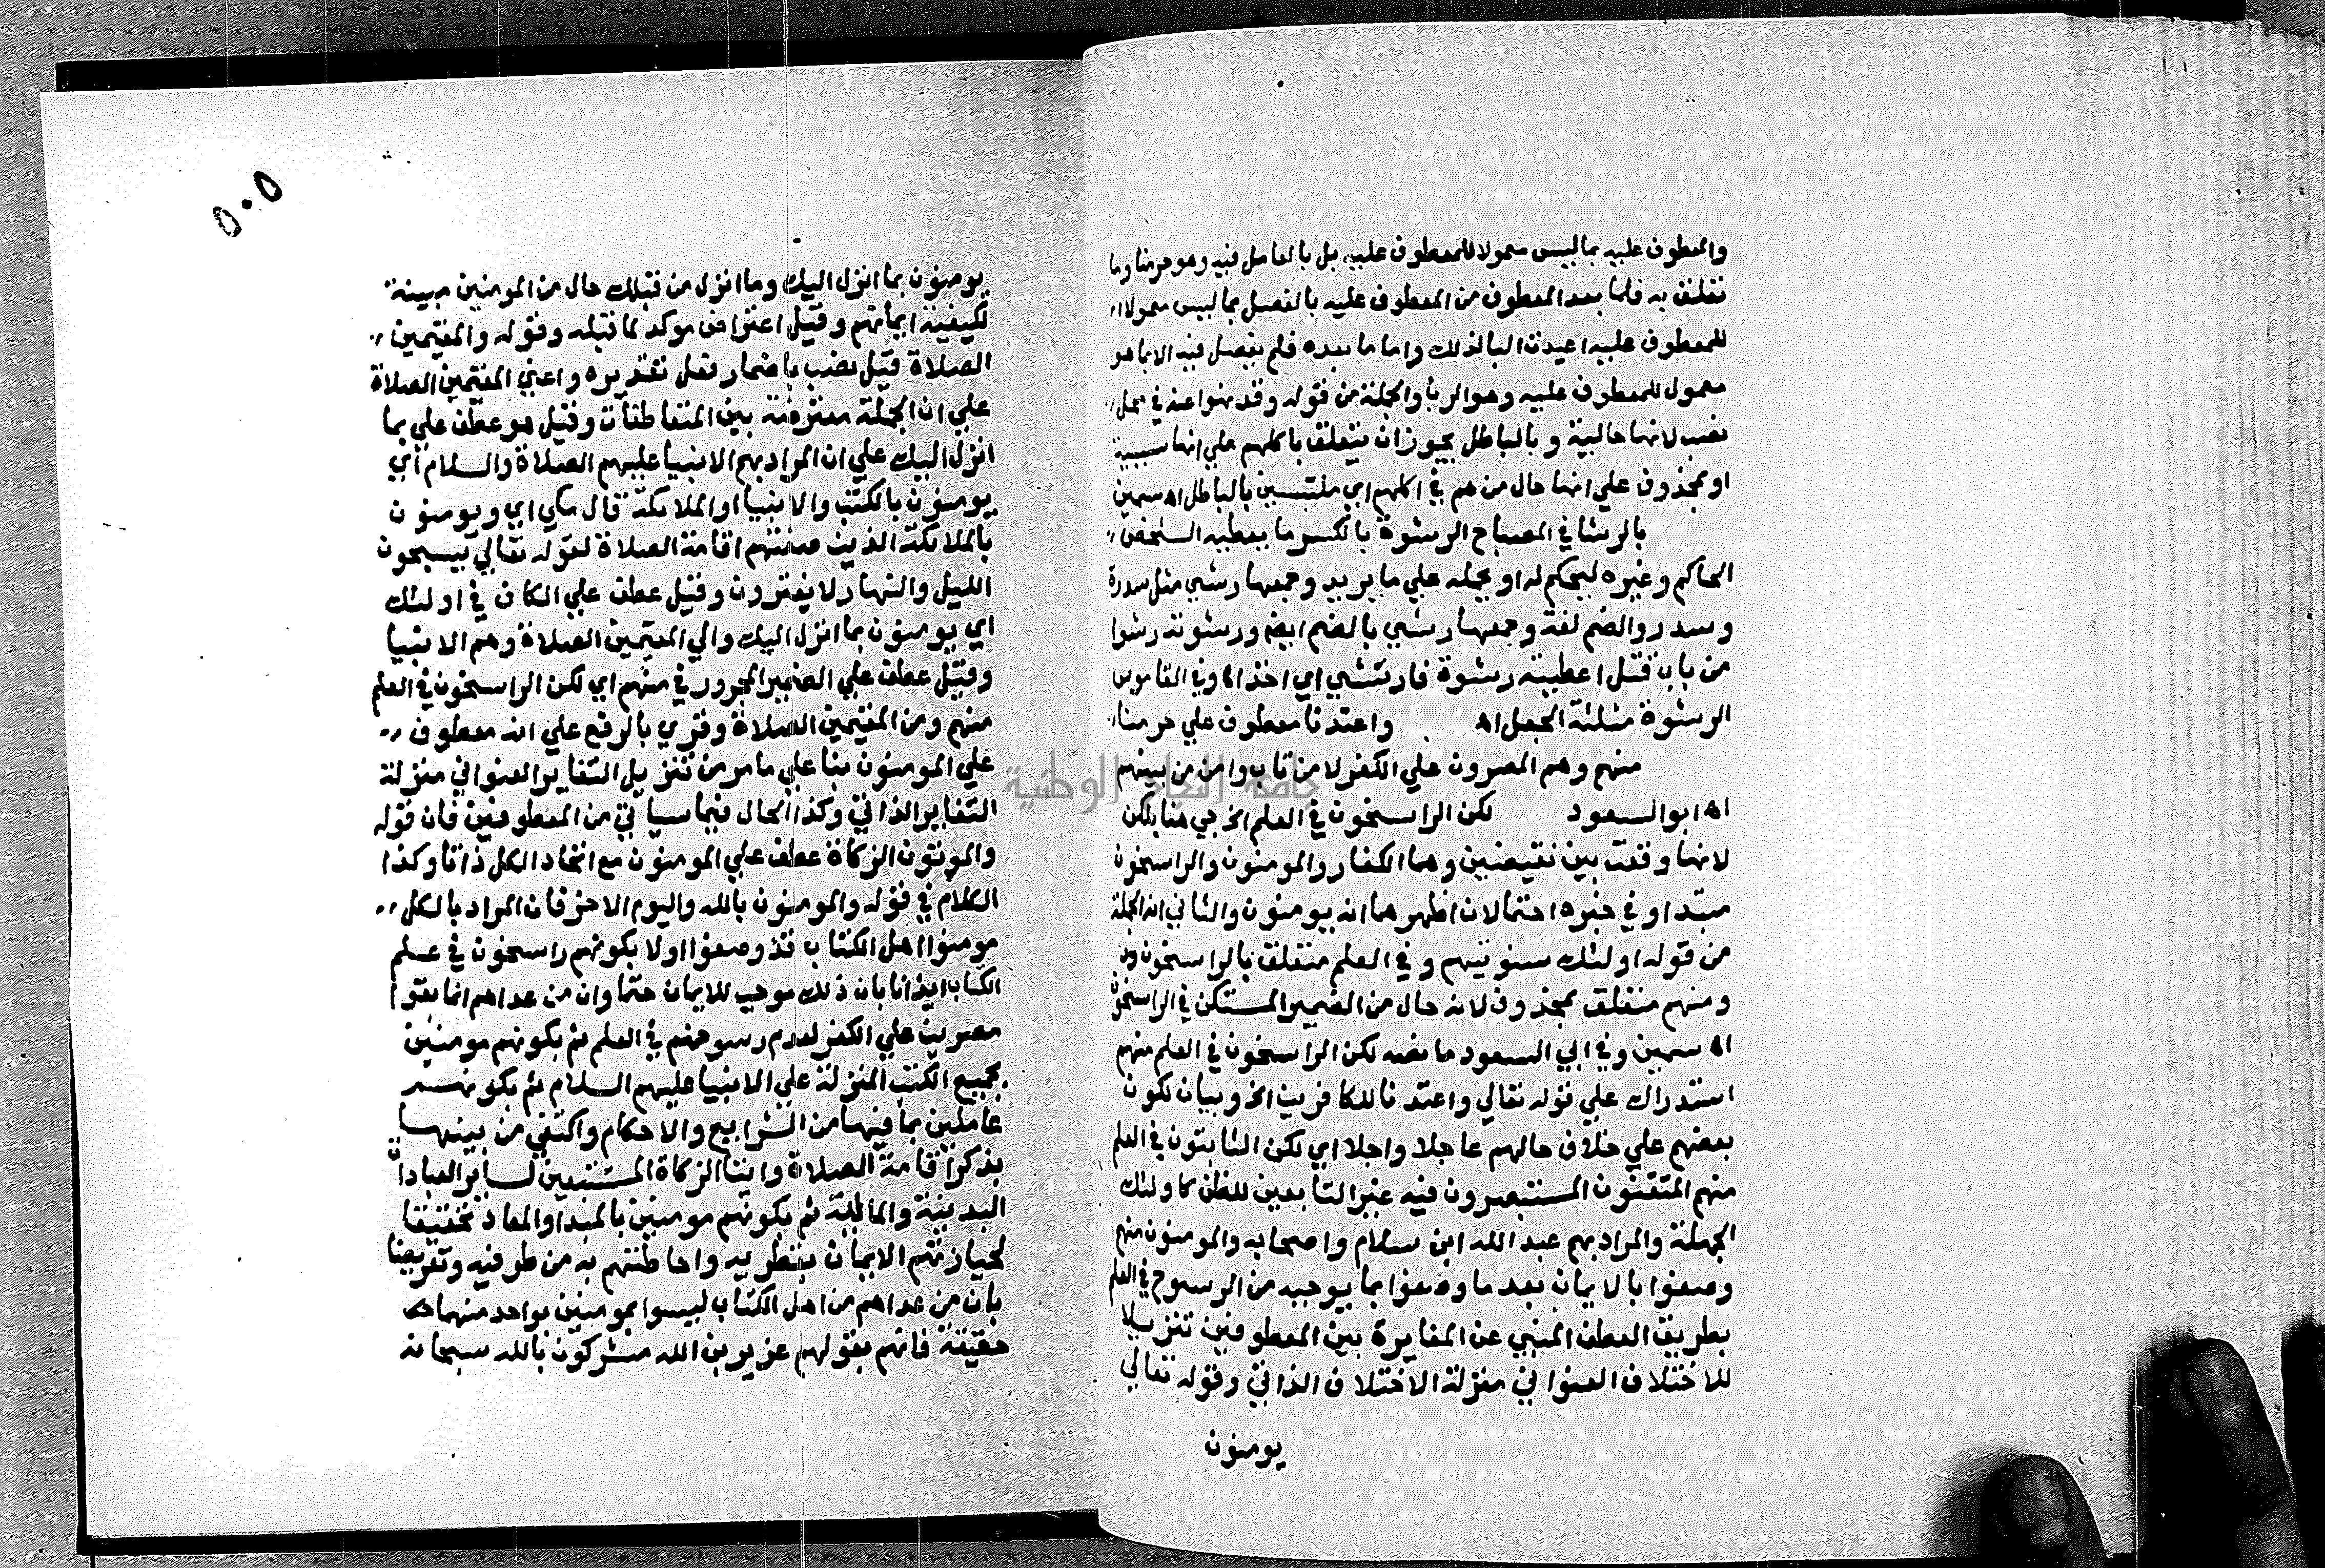 والمعطوف عليه بما ليس معمولا للمعطوف عليه بل بالعامل فيه وهو حرمنا وما
تعلق به فلما بعد المعطوف من المعطوف عليه بالفصل بما ليس معمولا
للمعطوف عليه اعيدت البا لذلك واما ما بعده فلم يفصل فيه الا بما هو
معمول للمعطوف عليه وهو الربا والجملة من قوله وقد نهوا عنه في محل
نصب لانها حالية وبالباطل يجوز ان يتعلق باكلهم علي انها سببية
او بمحذوف علي انها حال من هم في اكلهم اي ملتبسين بالباطل اه سمين
بالرشا في المصباح الرشوة بالكسر ما يعطيه الشخص
الحاكم وغيره ليحكم له او يحمله علي ما يريد وجمعها رشي مثل سدرة
وسدر والضم لغة وجمعها رشي بالضم ايضا ورشوته رشوا
من باب قتل اعطيته رشوة فارتشي اي اخذ اه وفي القاموس
الرشوة مثلثة الجعل اه واعتدنا معطوف علي حرمنا
منهم وهم المصرون علي الكفر لا من تاب وامن من بينهم
اه ابو السعود لكن الراسخون في العلم الخ جي هنا بلكن
لانها وقعت بين نقيضين وهما الكفار والمومنون والراسخون
مبتدا وفي خبره احتمالان اظهرهما انه يومنون والثاني انه الجملة
من قوله اولئك سنوتيهم وفي العلم متعلق بالراسخون
ومنهم متعلق بمحذوف لانه حال من الضمير المستكن في الراسخون
اه سمين وفي ابي السعود ما نصه لكن الراسخون في العلم منهم
استدراك علي قوله تعالي واعتدنا للكافرين الخ وبيان لكون
بعضهم علي خلاف حالهم عاجلا واجلا اي لكن الثابتون في العلم
منهم المتقنون المستبصرون فيه غير التابعين للظن كاولئك
الجهلة والمراد بهم عبد الله ابن سلام واصحابه والمومنون منهم
وصفوا بالايمان بعد ما وصفوا بما يوجبه من الرسوخ في العلم
بطريق العطف المنبي عن المغايرة بين المعطوفين تنزيلا
للاختلاف العنواني منزلة الاختلاف الذاتي وقوله تعالي
يومنون
٥٠٥
يومنون بما انزل اليك وما انزل من قبلك حال من المومنين مبينة
لكيفية ايمانهم وقيل اعتراض موكد لما قبله وقوله والمقيمين
الصلاة قيل نصب باضمار فعل تقديره واعني المقيمين الصلاة
علي ان الجملة معترضة بين المتعاطفات وقيل هو عطف علي بما
انزل اليك علي ان المراد بهم الانبيا عليهم الصلاة والسلام اي
يومنون بالكتب والانبيا او الملائكة قال مكي اي ويومنون
بالملائكة الذين صفتهم اقامة الصلاة لقوله تعالي يسبحون
الليل والنهار لا يفترون وقيل عطف علي الكاف في اولئك
اي يومنون بما انزل اليك والي المقيمين الصلاة وهم الانبيا
وقيل عطف علي الضمير المجرور في منهم اي لكن الراسخون في العلم
منهم ومن المقيمين الصلاة وقري بالرفع علي انه معطوف
علي المومنون بنا علي ما مر من تنزيل التغاير العنواني منزلة
التغاير الذاتي وكذا الحال فيما سياتي من المعطوفين فان قوله
والموتون الزكاة عطف علي المومنون مع اتحاد الكل ذاتا وكذا
الكلام في قوله والمومنون بالله واليوم الاخر فان المراد بالكل
مومنوا اهل الكتاب قد وصفوا اولا بكونهم راسخون في علم
الكتاب ايذانا بان ذلك موجب للايمان حتما وان من عداهم انما بقوا
مصرين علي الكفر لعدم رسوخهم في العلم ثم بكونهم مومنين
بجميع الكتب المنزلة علي الانبيا عليهم السلام ثم بكونهم
عاملين بما فيها من الشرايع والاحكام واكتفي من بينها
بذكر اقامة الصلاة وايتا الزكاة المستتبعين لساير العبادات
البدنية والمالية ثم بكونهم مومنين بالمبدا والمعاد تحقيقا
لحيازتهم الايمان بقطريه واحاطتهم به من طرفيه وتعريضا
بان من عداهم من اهل الكتاب ليسوا بمومنين بواحد منهما
حقيقة فانهم بقولهم عزير بن الله مشركون بالله سبحانه
جامعة النجاح الوطنية